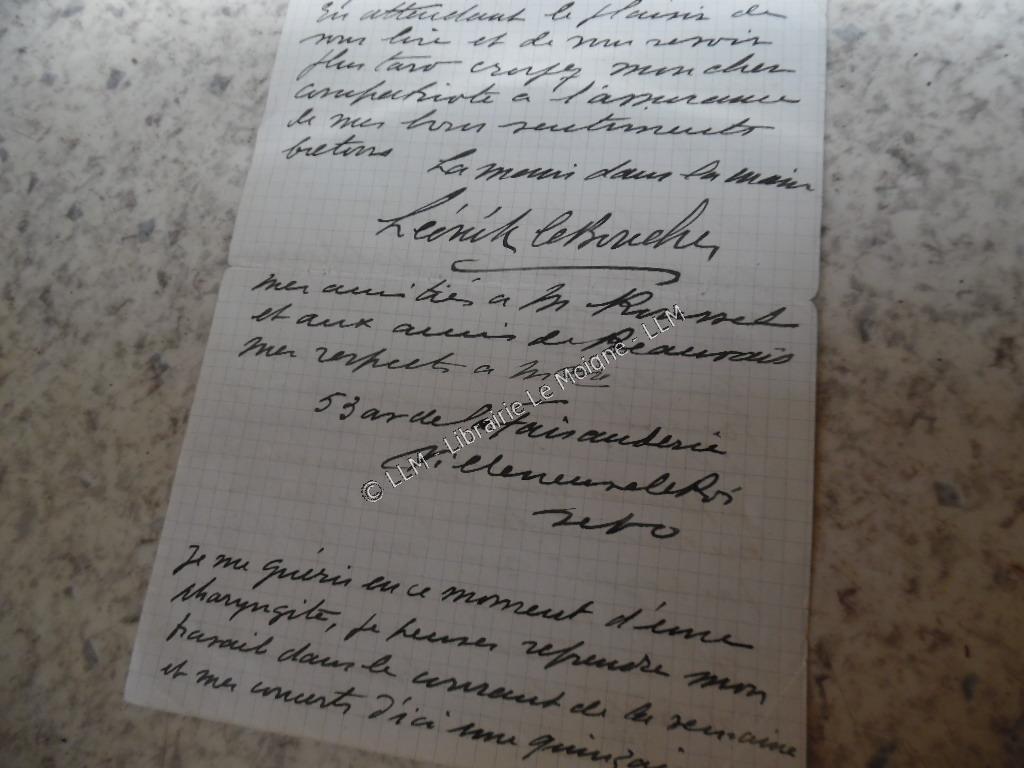 En attendant le plaisir de
vous lire et de vous revoir
plus tard croyez mon cher
compatriote a l'assurance
de mes bons sentiments
bretons
La main dans la main
Léénik leBouche
mes amitiés a M
et aux amis de Beauvais
mes respects a
53 av de la Faisanderie
Villeneuve le Roi
S et O
Je me guéris en ce moment d'une
pharyngite, je penses reprendre mon
travail dans le courant de la semaine
et mes concerts d'ici une
© LLM - Librairie Le Moigne - LLM